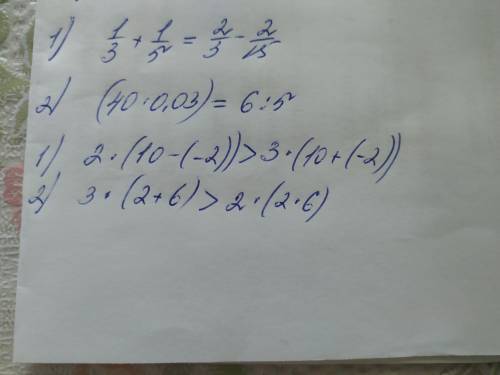 1) 1/3 + 1/5 = 2/3 - 2/15
2) (40·0,03) = 6:5
1) 2·(10-(-2))>3·(10+(-2))
2) 3·(2+6)>2·(2·6)